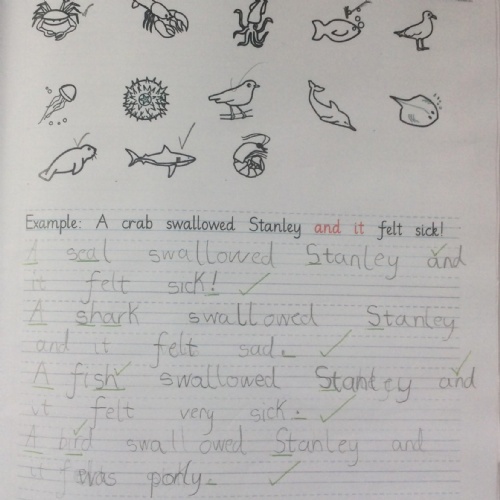 Example: A crab swallowed Stanley and it felt sick!
A seal swallowed Stanley and
it felt sick!
A shark swallowed Stanley
and it felt sad.
A fish swallowed Stanley and
it felt very sick.
A bird swallowed Stanley and
it was porly.